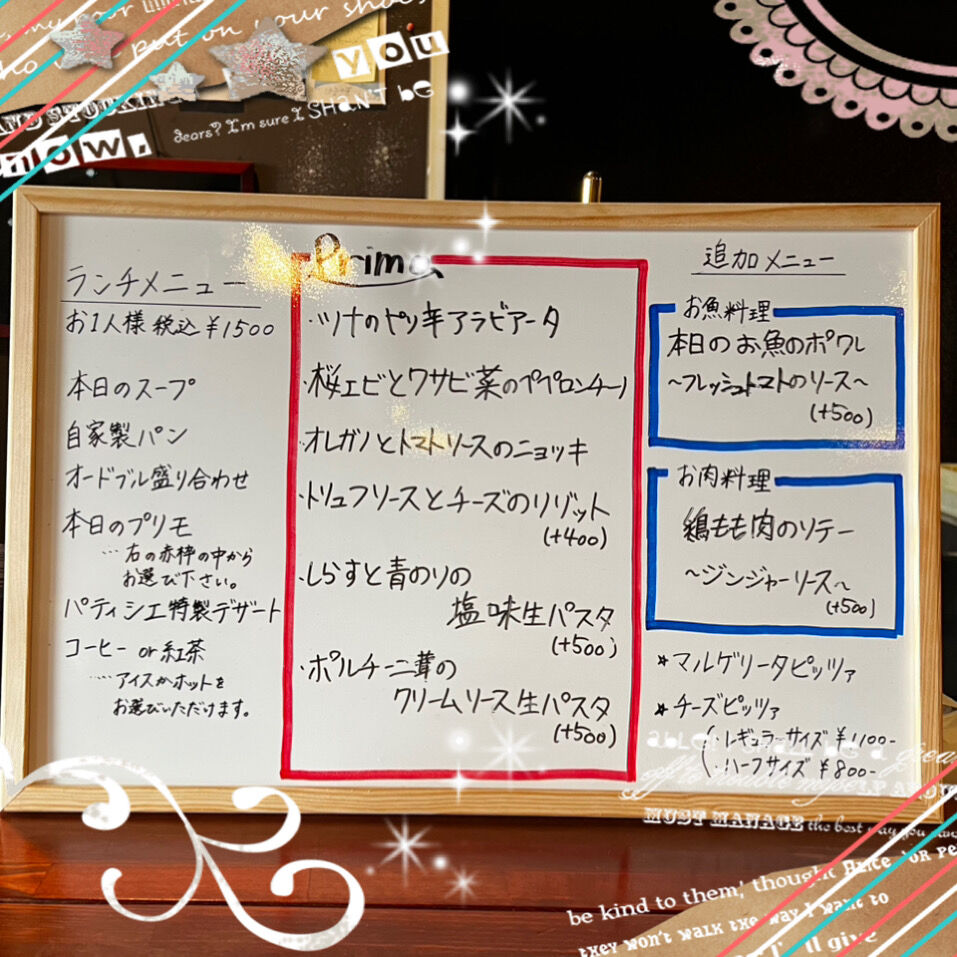 my poor little
who will put on your shoes
AND STOCKINGS
YOU
now,
dears? I'm sure I SHAN'T bE
ランチメニュー
お1人様 税込 ¥1500
本日のスープ
自家製パン
オードブル盛り合わせ
本日のプリモ
…右の赤枠の中から
お選び下さい。
パティシエ特製デザート
コーヒー or 紅茶
…アイスかホットを
お選びいただけます。
Primo
・ツナのペンネアラビアータ
・桜エビとワサビ菜のペペロンチーノ
・オレガノとトマトソースのニョッキ
・トリュフソースとチーズのリゾット
(+400)
・しらすと青のりの
塩味生パスタ
(+500)
・ポルチーニ茸の
クリームソース生パスタ
(+500)
追加メニュー
お魚料理
本日のお魚のポワレ
〜フレッシュトマトのソース〜
(+500)
お肉料理
鶏もも肉のソテー
〜ジンジャーソース〜
(+500)
★マルゲリータピッツァ
★チーズピッツァ
・レギュラーサイズ ¥1100-
・ハーフサイズ ¥800-
MUST MANAGE the best way you
be kind to them,' thought Alice, 'OR
they won't walk the way I want to
I'll give